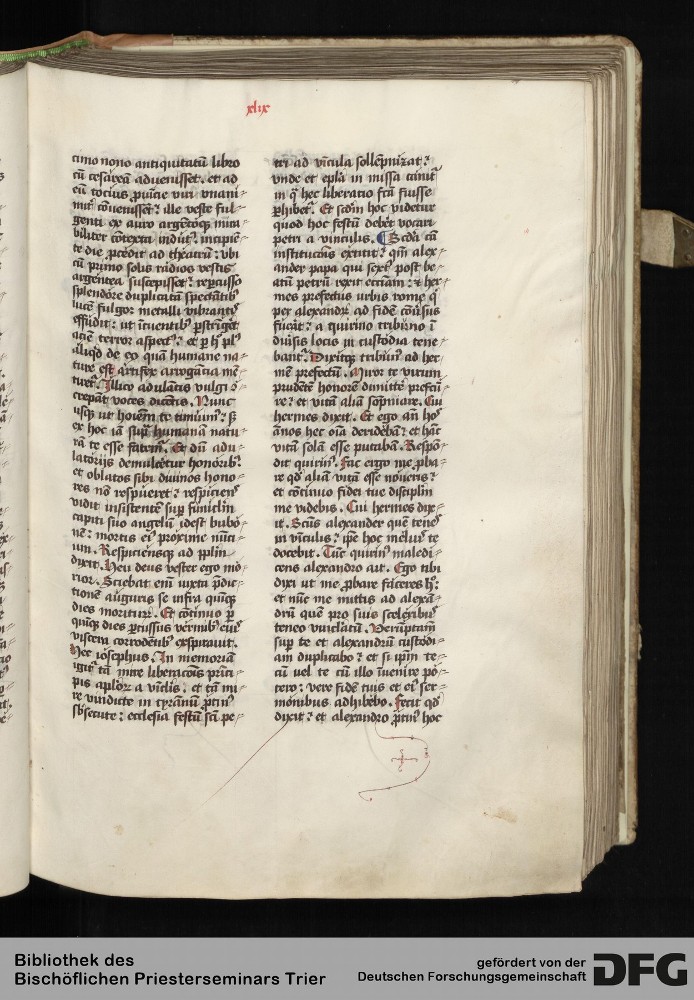 xlix
cimo nono antiquitatū libro
cū cesaream aduenisset. et ad
eū tocius ꝓuīcie viri vnani-
mit᷑ cōuenissēt: ille veste ful-
genti ex auro argētoqꝫ mira
biliter cōtexta indut᷒: incipiē-
te die ꝓcedit ad theatrū: vbi
cū primo solis radios vestis
argentea suscepisset: repcusso
splendore duplicatū spectātibꝰ
lucē fulgor metalli vibrantꝭ
effūdit: ut ītuentibꝰ pstrīgēt
aciē terror aspectꝰ: et ꝑ hͦ plꝰ
aliqd de eo quā humane na-
ture est artifex arrogācia mē-
tiret᷑. Illico adulātis vulgi ī-
crepāt voces dicētis. Nunc
usqꝫ ut hoīem te timuim᷒: sꝫ
ex hoc iā sup humanā natu-
rā te esse fatem᷒. Et dū adu-
latoriis demulcētur honoribꝰ.
et oblatos sibi diuinos hono-
res nō respueret: respiciēs
vidit insistentē sup funiclm̄
capiti suo angelū idest bubo-
nē: mortis ei ꝓxime nūci-
um. Respiciensqꝫ ad pplm̄
dixit. Heu deus vester ego mo-
rior. Sciebat enī iuxta pdic-
tionē auguris se infra quīqꝫ
dies moriturꝫ. Et cōtinuo p
quīqꝫ dies pcussus vermibꝰ eiꝰ
viscera corrodētibꝰ exspirauit.
Hec iosephus. In memoriā
igit᷑ tā mire liberacōis prīci-
pis aplorꝫ a vīclis. et tā mi-
re vindicte in tyrānū ꝓtinꝰ
sbsecute: ecclesia festū scī pe-
tri ad vīcula sollēpnizat:
vnde et epla in missa canit᷑
in q̄ hec liberatio fca fuisse
ꝑhibet᷑. Et scdm hoc videtur
quod hoc festū debet vocari
petri a vinculis. Scda cā
institucōis extitit: qm̄ alex-
ander papa qui sextꝰ post be-
atū petrū rexit eccīam: et her-
mes prefectus urbis rome q̄
per alexandrū ad fidē cōūsus
fuerat: a quirino tribuno ī
diuīsis locis in custodia tene-
bant᷑. Dixitqꝫ tribun᷒ ad her
mē prefectū. Miror te virum
prudētē honorē dimittē prefctu-
re: et vitā aliā sopniare. Cui
hermes dixit. Et ego an̄ hos
ānos hec oīa deridebā: et hāc
vitā solā esse putabā. Respō-
dit quirin᷒. Fac ergo me pba-
re qd aliā vitā esse noueris:
et cōtinuo fidei tue disciplm̄
me videbis. Cui hermes dixe-
it. Scūs alexander quē tenes
in vīculis: ipe hoc meliꝰ te
docebit. Tūc quirin᷒ maledi-
cens alexandro ait. Ego tibi
dixi ut me pbare faceres hͦ:
et nūc me mittis ad alexā-
drū quē pro suis sceleribꝰ
teneo vinclatū. Verūptamē
sup te et alexandrū custodi-
am duplicabo: et si ipm te-
cū uel te cū illo īuenire po-
tero: vere fidē tuis et eiꝰ ser-
mōnibus adhibebo. Fecit qd
dixit: et alexandro ꝓtin᷒ hoc
Bibliothek des
Bischöflichen Priesterseminars Trier
gefördert von der
Deutschen Forschungsgemeinschaft
DFG